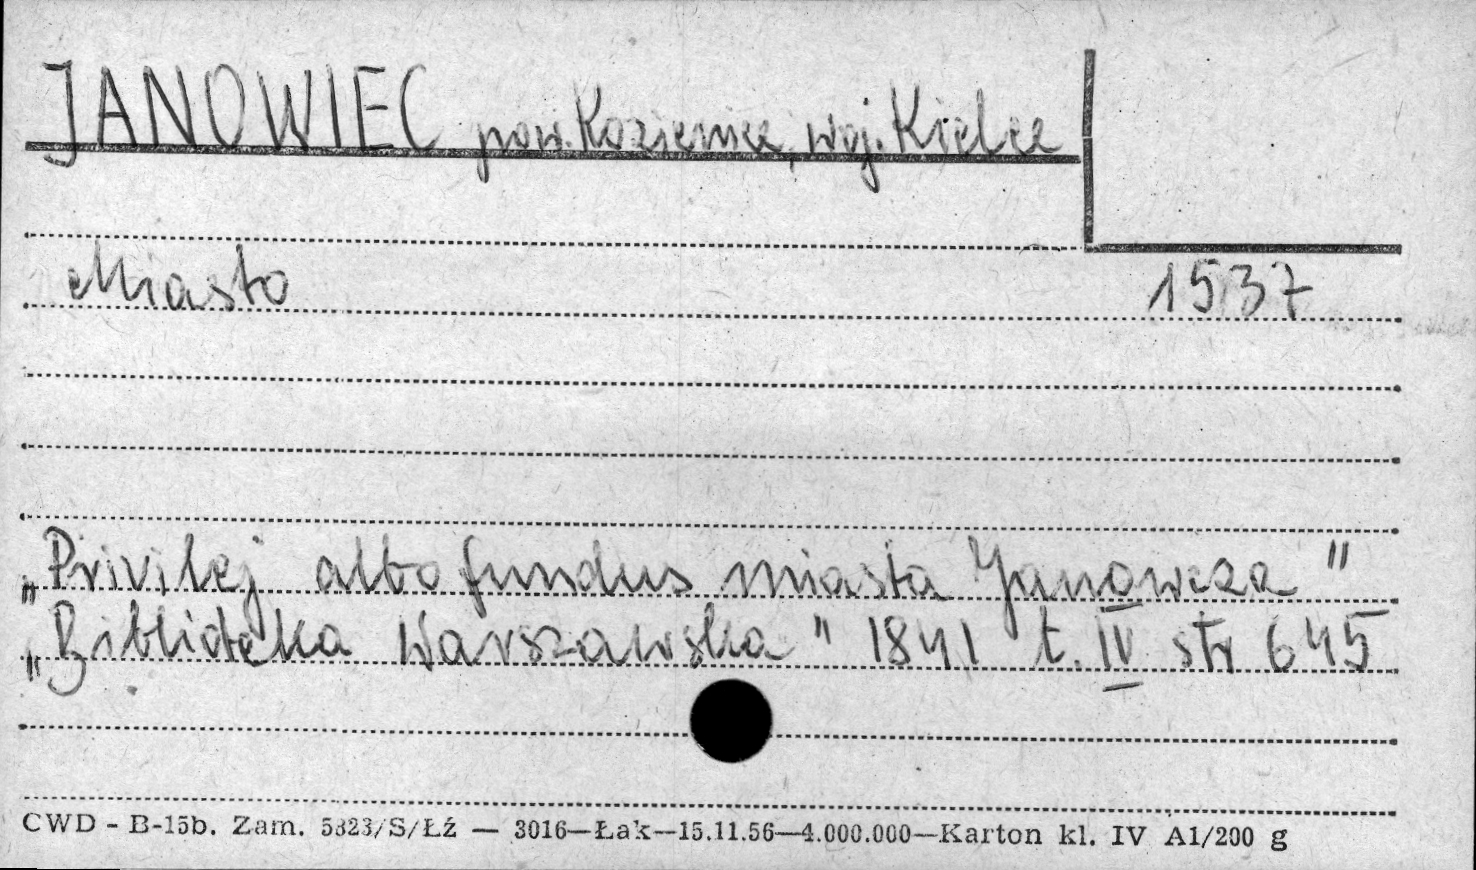 JANOWIEC pow. Kozienice, woj. Kielce
Miasto 1537
„Privilej albo fundus miasta Janowcza"
„Biblioteka Warszawska" 1841 t. IV str 645
CWD - B-15b. Zam. 5323/S/Łź — 3016—Łak—15.11.56—4.000.000—Karton kl. IV A1/200 g